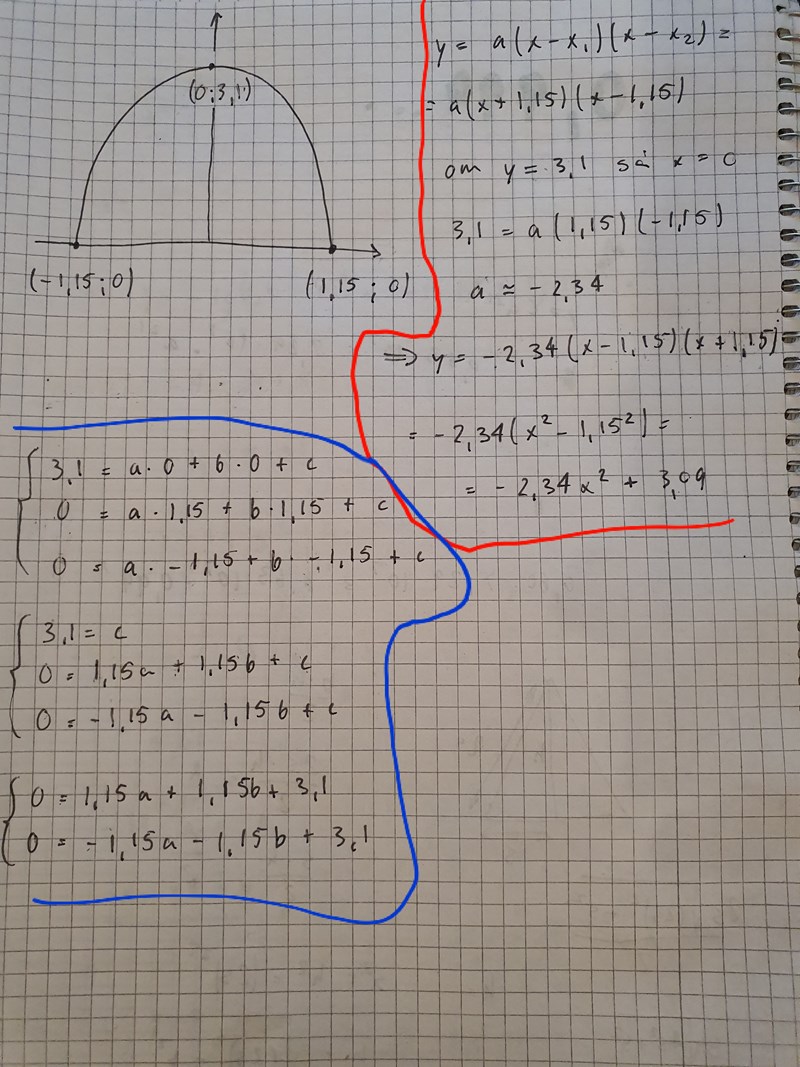 (0;3,1)
(-1,15;0)
(1,15;0)
y = a(x-x₁)(x-x₂) =
= a(x+1,15)(x-1,15)
om y = 3,1 så x = 0
3,1 = a(1,15)(-1,15)
a ≈ -2,34
⇒ y = -2,34(x-1,15)(x+1,15)
= -2,34(x²-1,15²) =
= -2,34x² + 3,09
3,1 = a·0 + b·0 + c
0 = a·1,15 + b·1,15 + c
0 = a·-1,15 + b·-1,15 + c
3,1 = c
0 = 1,15a + 1,15b + c
0 = -1,15a - 1,15b + c
0 = 1,15a + 1,15b + 3,1
0 = -1,15a - 1,15b + 3,1